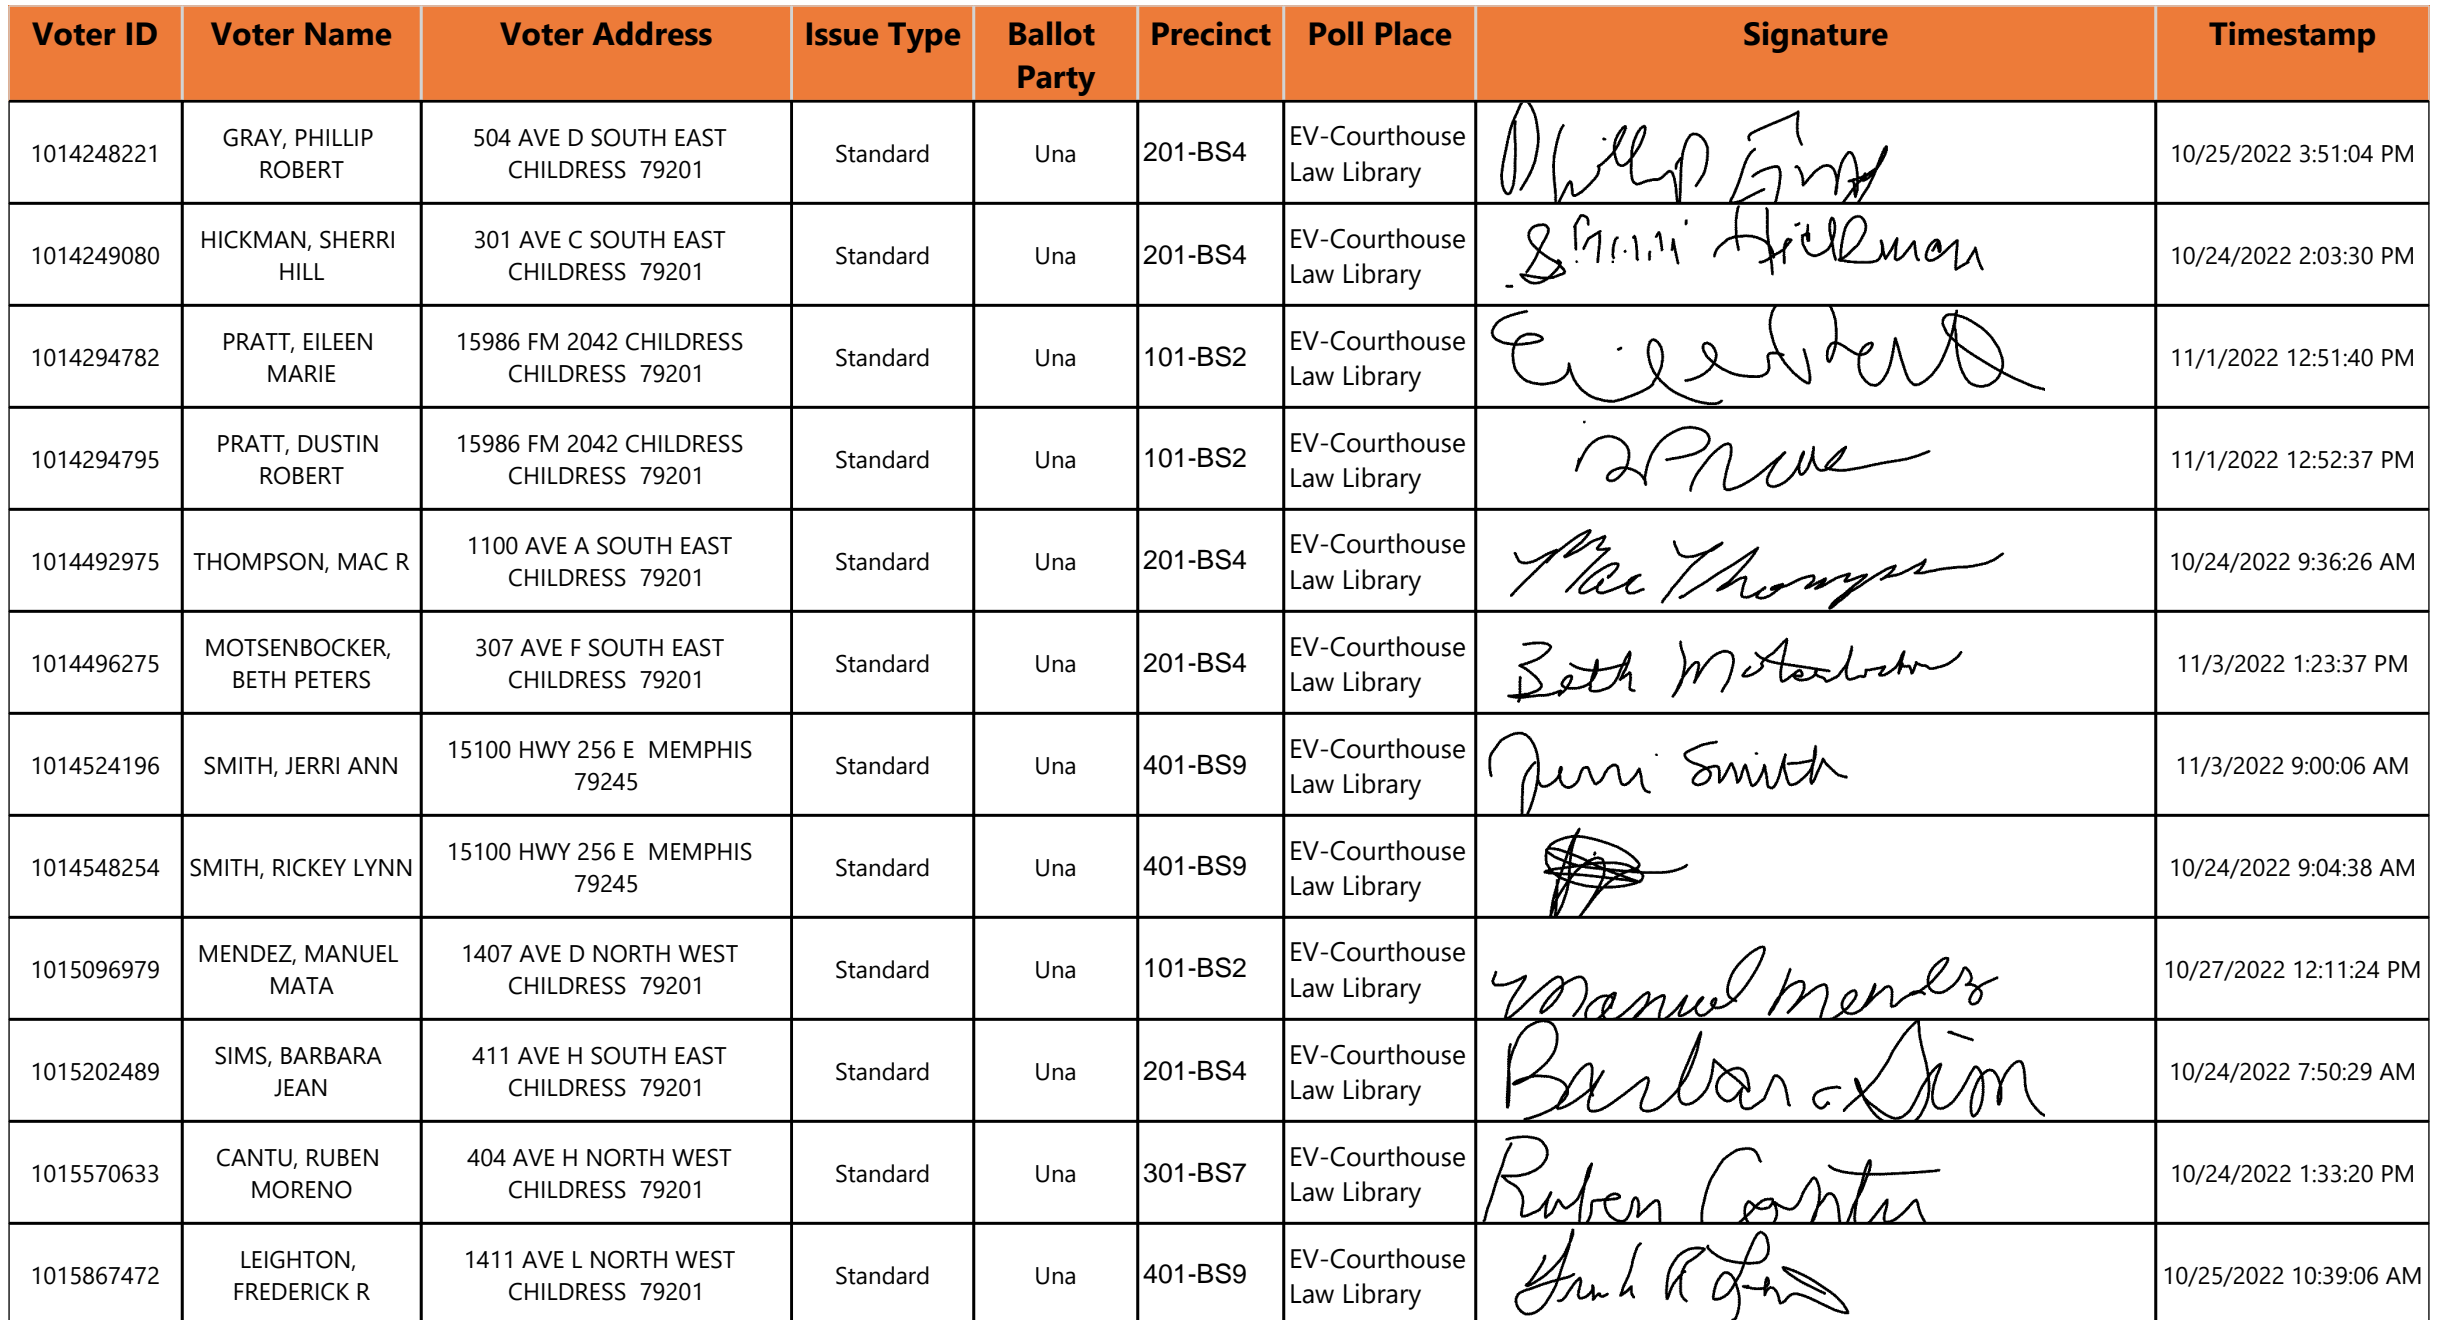 Voter ID Voter Name Voter Address Issue Type Ballot Party Precinct Poll Place Signature Timestamp
1014248221 GRAY, PHILLIP ROBERT 504 AVE D SOUTH EAST CHILDRESS 79201 Standard Una 201-BS4 EV-Courthouse Law Library Phillip Gray 10/25/2022 3:51:04 PM
1014249080 HICKMAN, SHERRI HILL 301 AVE C SOUTH EAST CHILDRESS 79201 Standard Una 201-BS4 EV-Courthouse Law Library Hickman 10/24/2022 2:03:30 PM
1014294782 PRATT, EILEEN MARIE 15986 FM 2042 CHILDRESS CHILDRESS 79201 Standard Una 101-BS2 EV-Courthouse Law Library Eileen Pratt 11/1/2022 12:51:40 PM
1014294795 PRATT, DUSTIN ROBERT 15986 FM 2042 CHILDRESS CHILDRESS 79201 Standard Una 101-BS2 EV-Courthouse Law Library 11/1/2022 12:52:37 PM
1014492975 THOMPSON, MAC R 1100 AVE A SOUTH EAST CHILDRESS 79201 Standard Una 201-BS4 EV-Courthouse Law Library Mac Thompson 10/24/2022 9:36:26 AM
1014496275 MOTSENBOCKER, BETH PETERS 307 AVE F SOUTH EAST CHILDRESS 79201 Standard Una 201-BS4 EV-Courthouse Law Library Beth Motsenbocker 11/3/2022 1:23:37 PM
1014524196 SMITH, JERRI ANN 15100 HWY 256 E MEMPHIS 79245 Standard Una 401-BS9 EV-Courthouse Law Library Jerri Smith 11/3/2022 9:00:06 AM
1014548254 SMITH, RICKEY LYNN 15100 HWY 256 E MEMPHIS 79245 Standard Una 401-BS9 EV-Courthouse Law Library 10/24/2022 9:04:38 AM
1015096979 MENDEZ, MANUEL MATA 1407 AVE D NORTH WEST CHILDRESS 79201 Standard Una 101-BS2 EV-Courthouse Law Library Manuel Mendez 10/27/2022 12:11:24 PM
1015202489 SIMS, BARBARA JEAN 411 AVE H SOUTH EAST CHILDRESS 79201 Standard Una 201-BS4 EV-Courthouse Law Library Barbara Sim 10/24/2022 7:50:29 AM
1015570633 CANTU, RUBEN MORENO 404 AVE H NORTH WEST CHILDRESS 79201 Standard Una 301-BS7 EV-Courthouse Law Library Ruben Cantu 10/24/2022 1:33:20 PM
1015867472 LEIGHTON, FREDERICK R 1411 AVE L NORTH WEST CHILDRESS 79201 Standard Una 401-BS9 EV-Courthouse Law Library 10/25/2022 10:39:06 AM